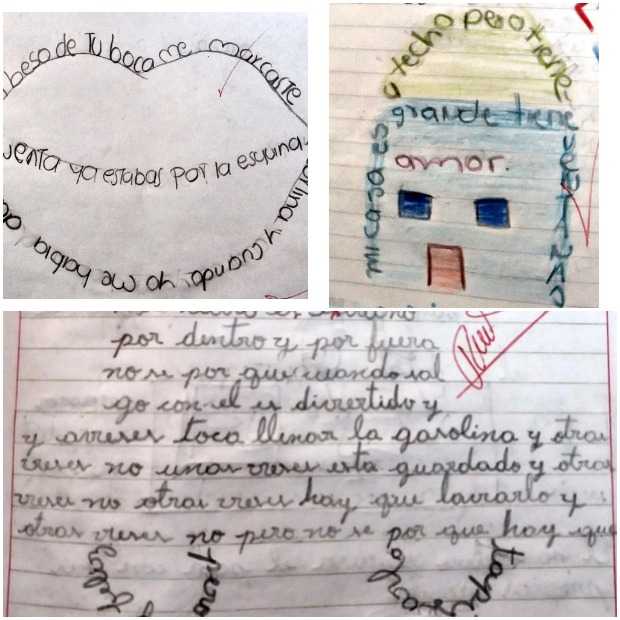 beso de Tu boca me marcaste
uenta ya estabas por la esquina
y cuando yo me habia
mi casa es
grande tiene
ventanas
techo pero tiene
amor.
por dentro y por fuera
no se por que cuando sal
go con el es divertido y
y aveses toca llenar la gasolina y otras
veses no unas veses esta guardado y otras
veses no otras veses hay que lavarlo y
otras veses no pero no se por que hay que
pero